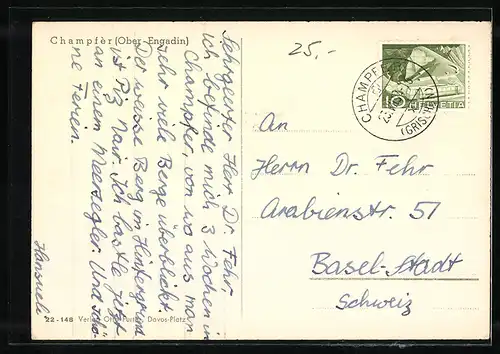 Champfèr (Ober-Engadin)
25,-
HELVETIA
CHAMPFÈR
(GRISCHUN)
Sehrgeerter Herr Dr. Fehr
ich befinde mich 3 Wochen in
Champfer, von wo aus man
sehr viele Berge überblickt.
Der weisse Berg im Hintergrund
ist Piz Nair. Ich bastle jetzt
an einem Meersegler. Und schö-
ne Ferien.
Hansueli
An
Herrn Dr. Fehr
Arabienstr. 51
Basel-Stadt
Schweiz
22-148 Verlag Davos-Platz